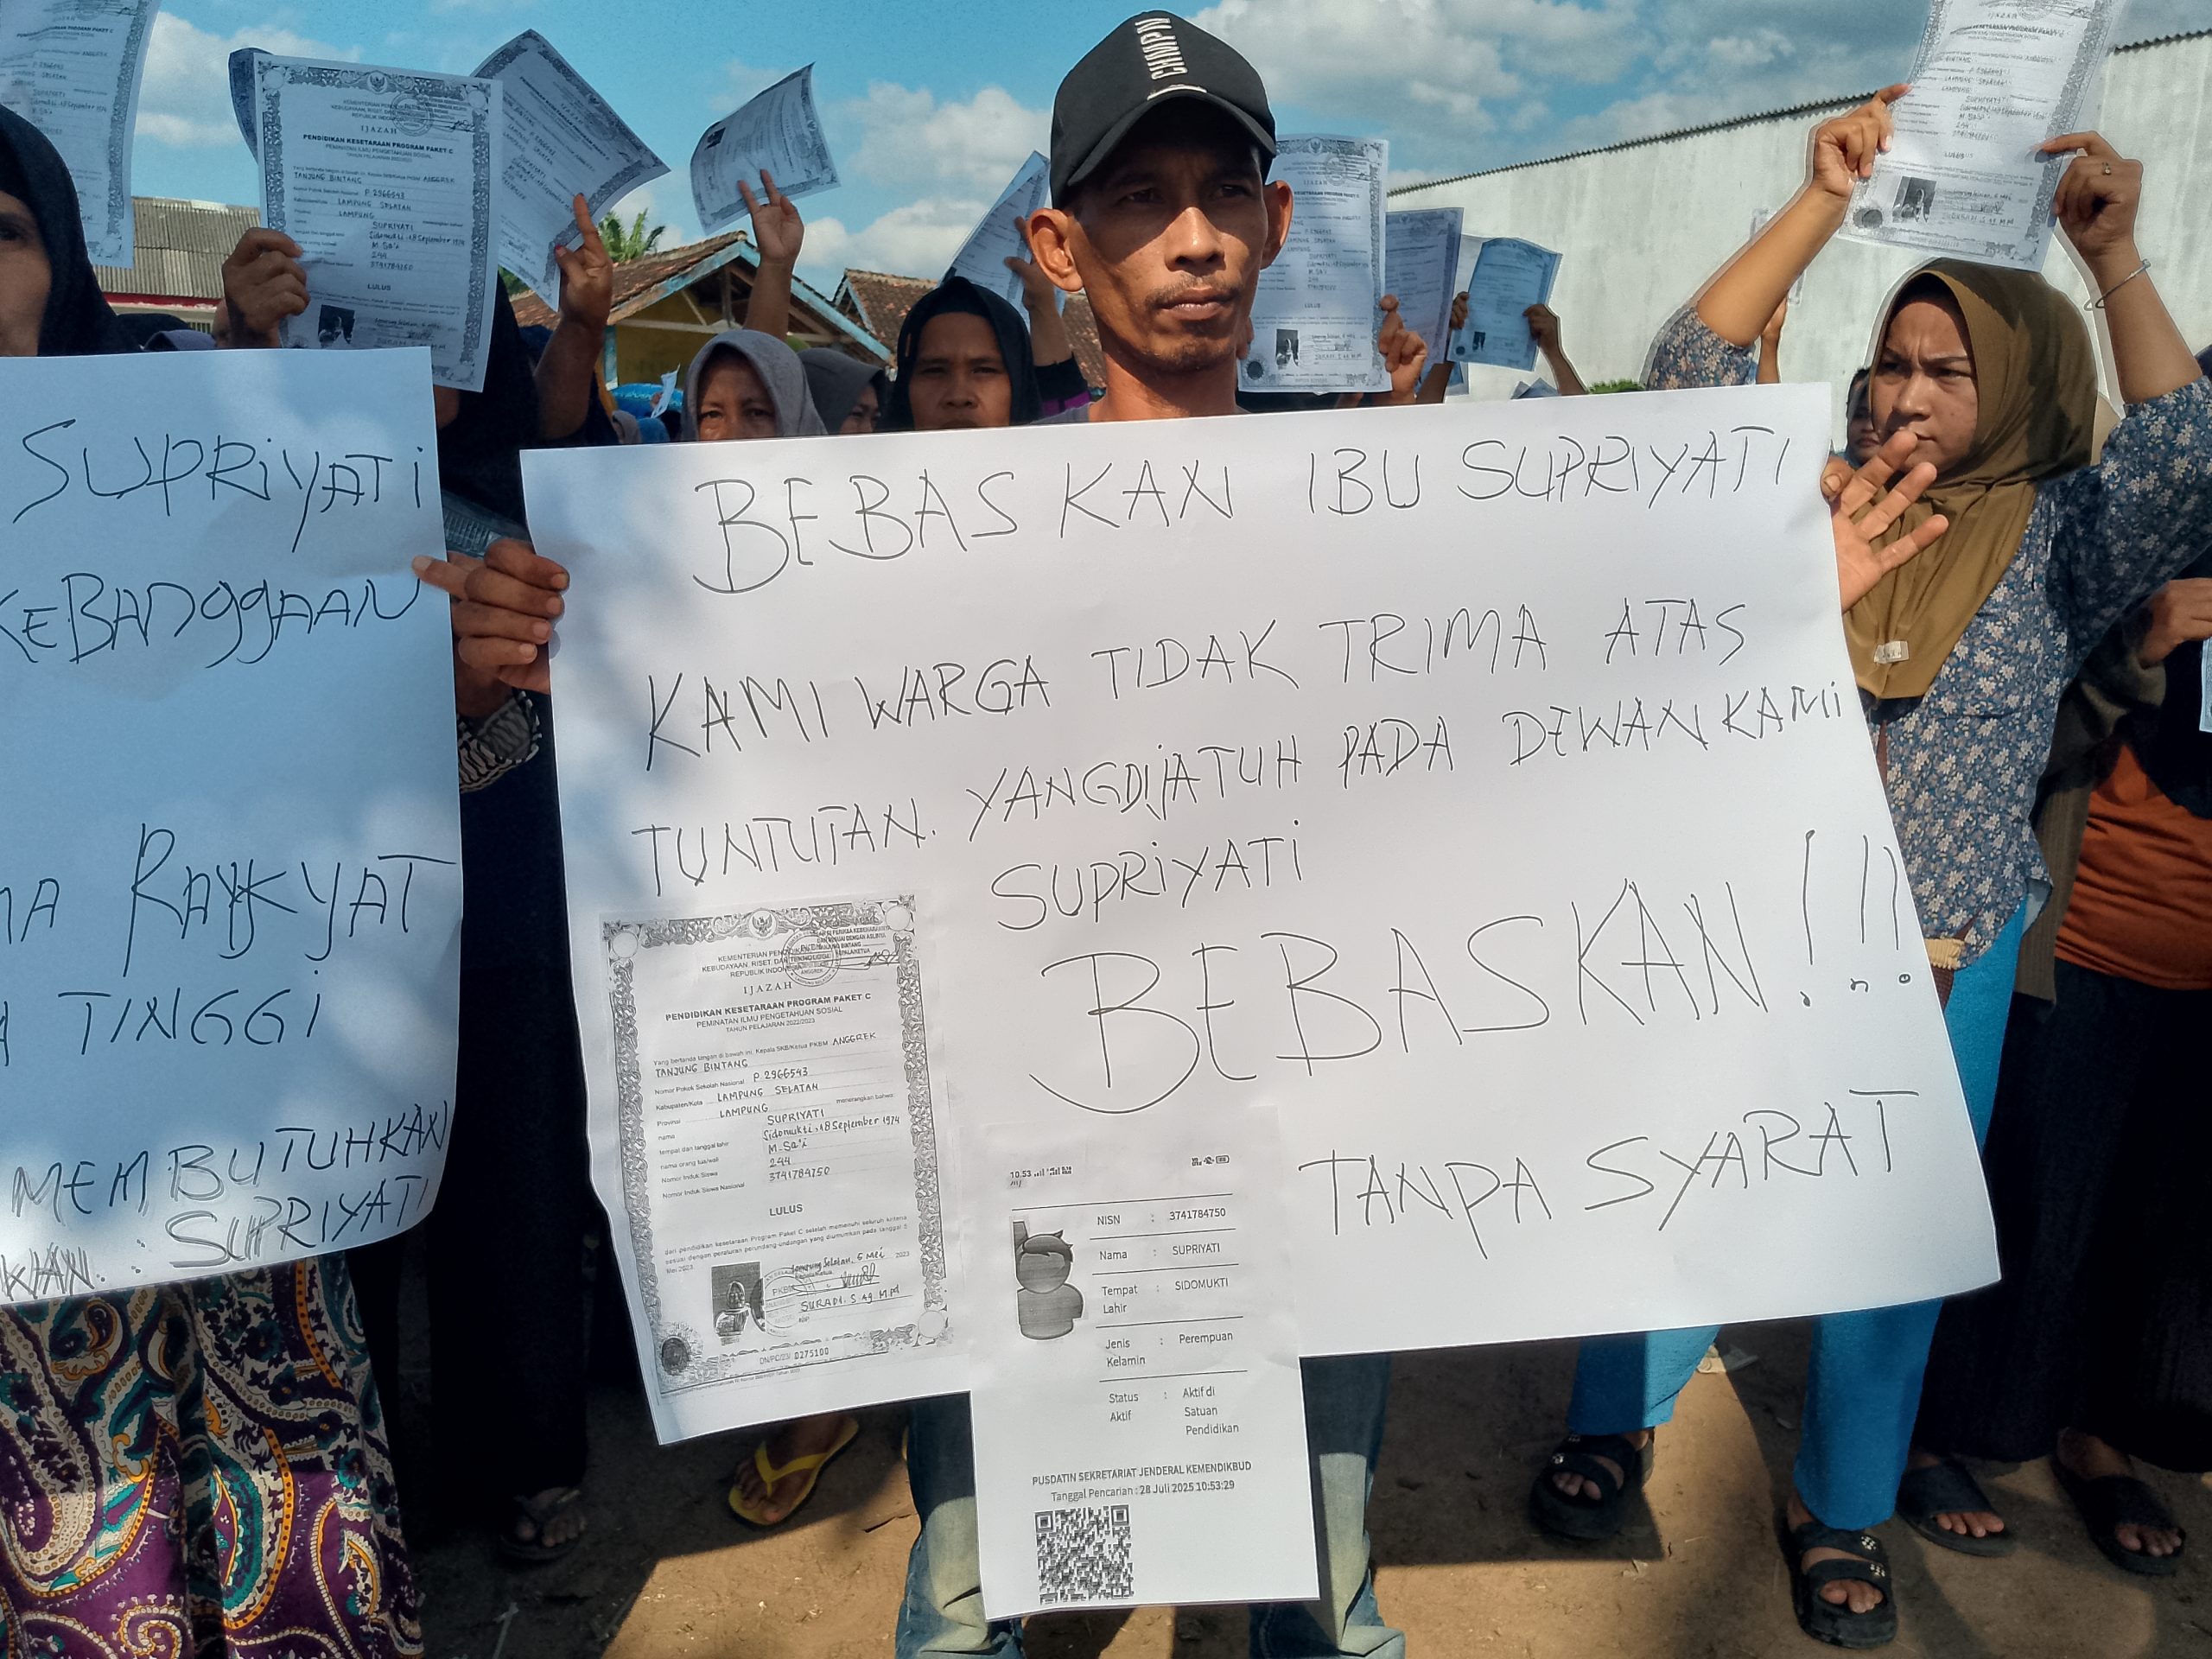 CHMPN
SUPRiYATi
KEBANggAAN
RAKYAT
TINGGi
MEMBUTUHKAN
SUPRIYATI
BEBASKAN IBU SUPRIYATI
KAMI WARGA TIDAK TRIMA ATAS
TUNTUTAN. YANGDIJATUH PADA DEWAN KAMi
SUPRiYATi
BEBASKAN!!!
TANPA SYARAT
REPUBLIK INDONESIA
IJAZAH
PENDIDIKAN KESETARAAN PROGRAM PAKET C
PEMINATAN ILMU PENGETAHUAN SOSIAL
TAHUN PELAJARAN 2022/2023
Yang bertanda tangan di bawah ini, Kepala SKB/Ketua PKBM ANGGREK
TANJUNG BINTANG
Nomor Pokok Sekolah Nasional P.2966543
Kabupaten/Kota LAMPUNG SELATAN
Provinsi LAMPUNG menerangkan bahwa
nama SUPRIYATI
tempat dan tanggal lahir Sidomukti, 18 September 1974
nama orang tua/wali M. Sa'i
Nomor Induk Siswa 244
Nomor Induk Siswa Nasional 3741784750
LULUS
dari pendidikan kesetaraan Program Paket C setelah memenuhi seluruh kriteria
sesuai dengan peraturan perundang-undangan yang diumumkan pada tanggal 5
Mei 2023.
Lampung Selatan, 5 Mei 2023
PKBM
SURADI. S.Ag. M.Pd
DN/PC/23/ 0275100
10.53
NISN : 3741784750
Nama : SUPRIYATI
Tempat Lahir : SIDOMUKTI
Jenis Kelamin : Perempuan
Status Aktif : Aktif di Satuan Pendidikan
PUSDATIN SEKRETARIAT JENDERAL KEMENDIKBUD
Tanggal Pencarian : 28 Juli 2025 10:53:29
IJAZAH
PENDIDIKAN KESETARAAN PROGRAM PAKET C
PEMINATAN ILMU PENGETAHUAN SOSIAL
TANJUNG BINTANG
P.2966543
LAMPUNG SELATAN
LAMPUNG
SUPRIYATI
Sidomukti, 18 September 1974
M. Sa'i
244
3741784750
LULUS